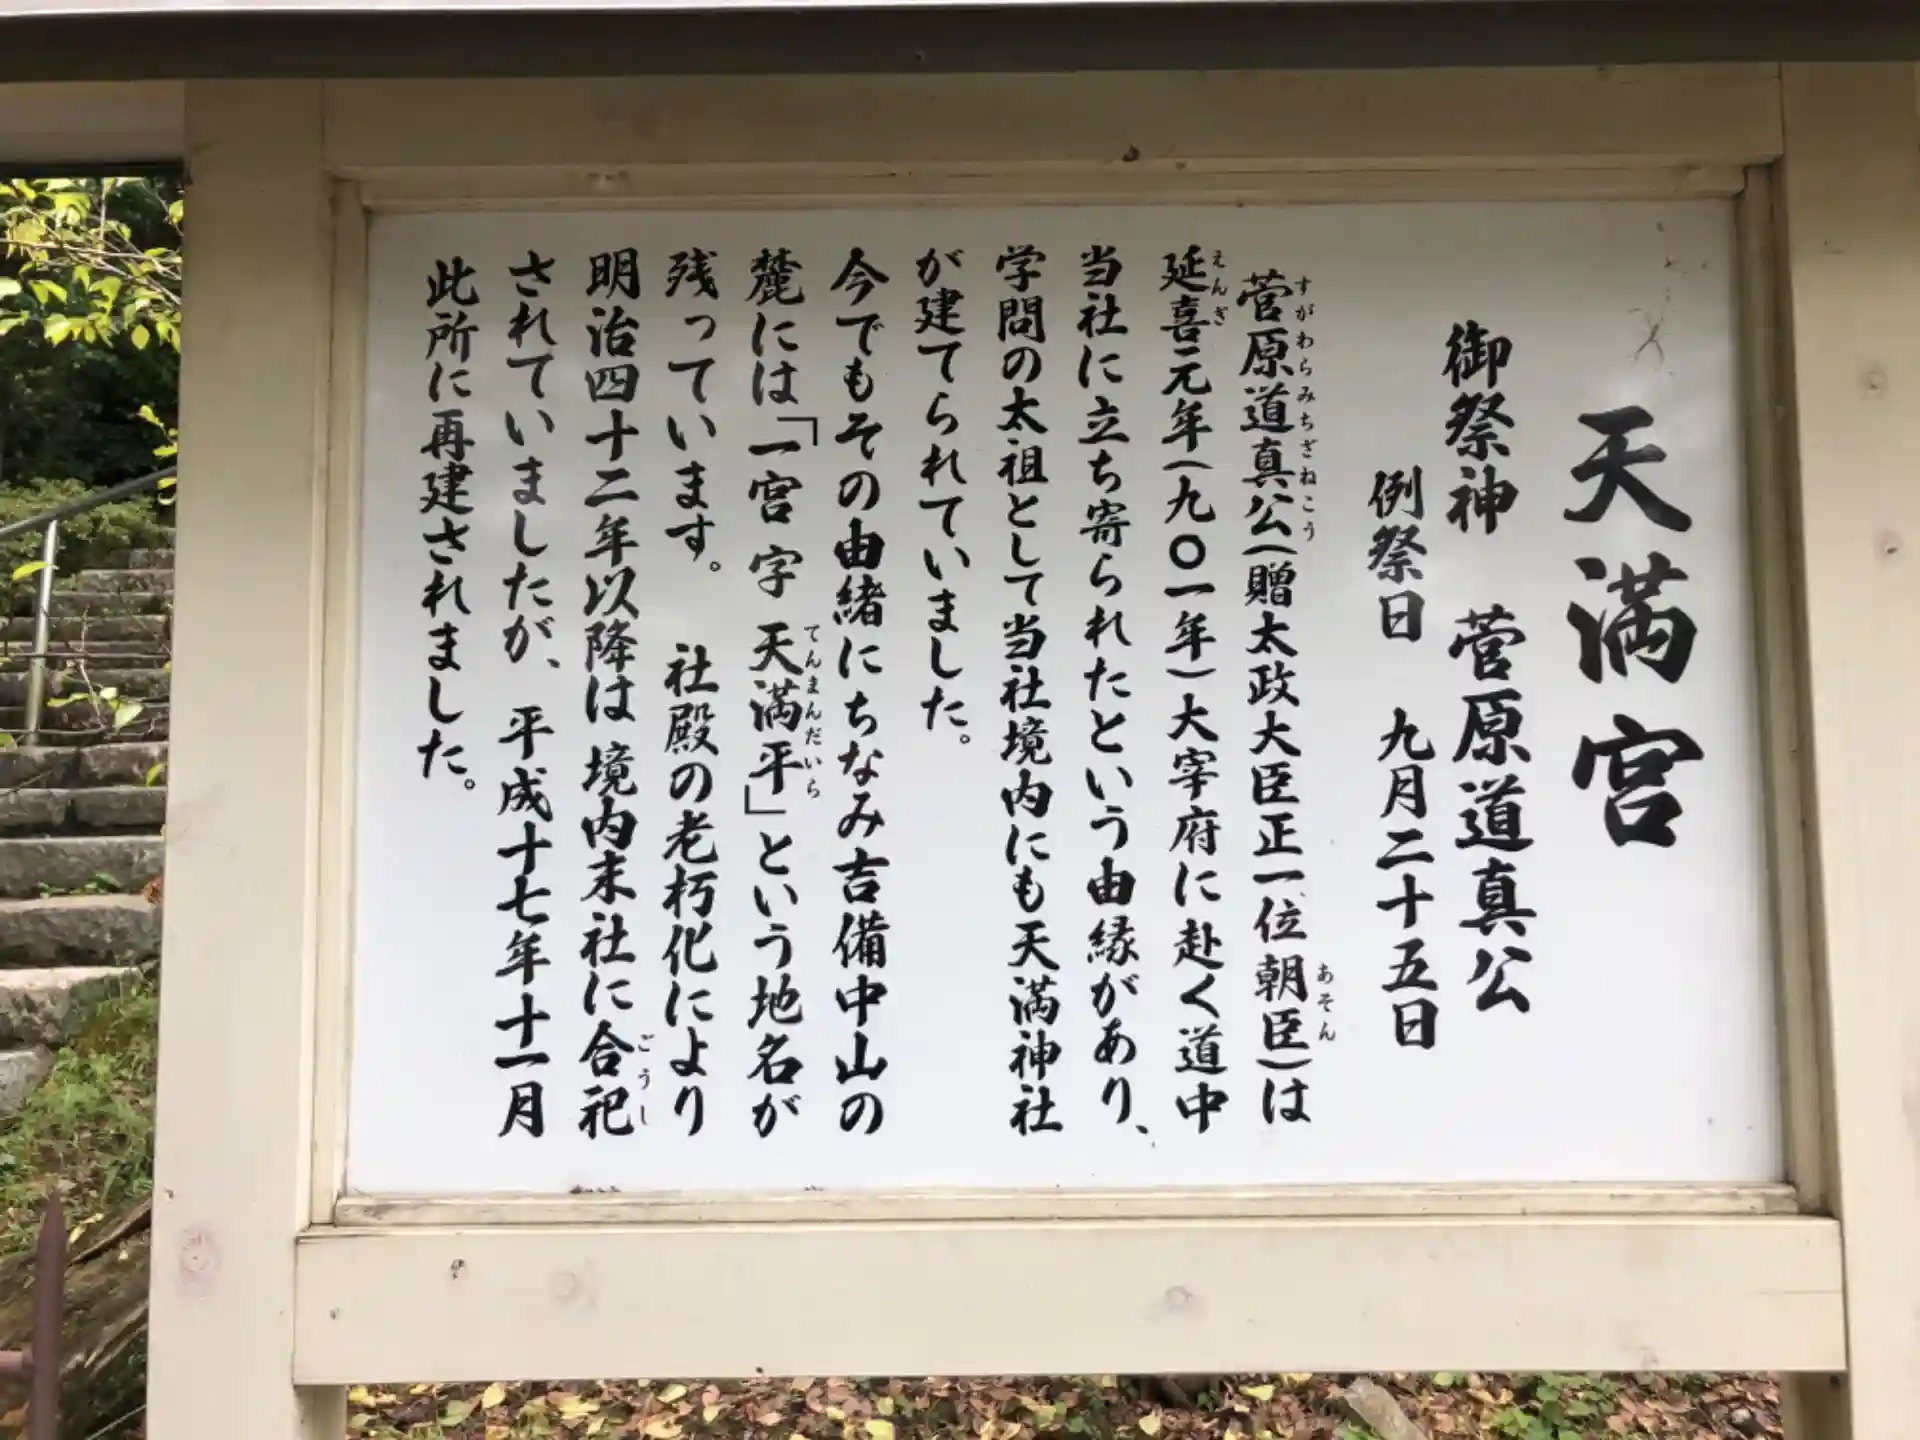 天満宮
御祭神 菅原道真公
例祭日 九月二十五日
菅原道真公(贈太政大臣正一位朝臣)は
すがわらみちざねこう
あそん
延喜元年(九〇一年)大宰府に赴く道中
えんぎ
当社に立ち寄られたという由縁があり、
学問の太祖として当社境内にも天満神社
が建てられていました。
今でもその由緒にちなみ吉備中山の
麓には「一宮 字 天満平」という地名が
てんまんだいら
残っています。 社殿の老朽化により
明治四十二年以降は境内末社に合祀
ごうし
されていましたが、平成十七年十一月
此所に再建されました。